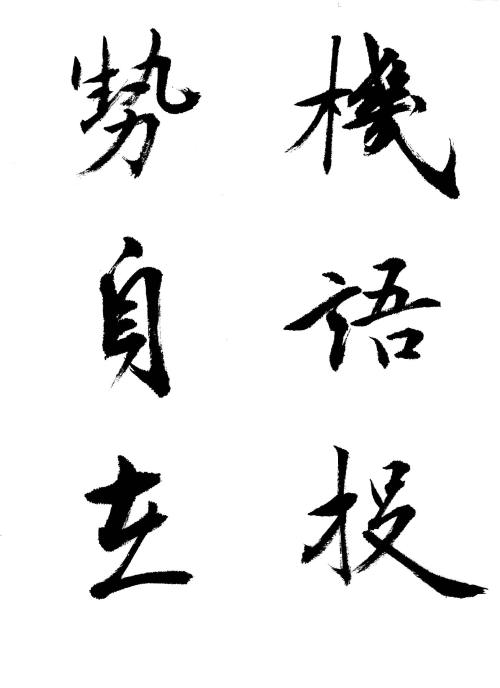 機語投
勢自在